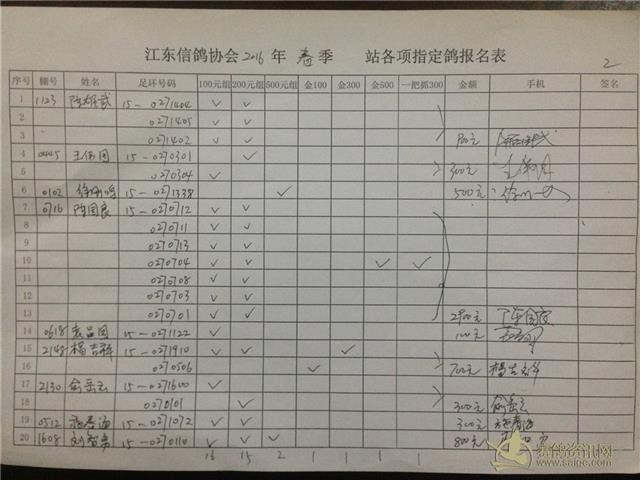 江东信鸽协会2016年 春季 站各项指定鸽报名表
2
序号 棚号 姓名 足环号码 100元组 200元组 500元组 金100 金300 金500 一把抓300 金额 手机 签名
1 1123 15-0271404 ✓ ✓
2 0271405 ✓ ✓
3 0271402 ✓ ✓ 900元
4 0445 15-0270301 ✓
5 0270304 ✓ 300元
6 0102 15-0271338 ✓ 500元
7 0716 陈国良 15-0270712 ✓ ✓
8 0270711 ✓ ✓
9 0270713 ✓ ✓
10 0270704 ✓ ✓ ✓ ✓
11 0270708 ✓ ✓
12 0270703 ✓ ✓
13 0270701 ✓ ✓ 2900元
14 0618 袁品国 15-0271122 ✓ 100元
15 2148 杨吉祥 15-0271910 ✓ ✓ ✓
16 0270506 ✓ 700元
17 2130 俞岳云 15-0271600 ✓
18 0270101 ✓ 300元 俞岳云
19 0512 15-0271072 ✓ ✓ 300元
20 1608 刘智勇 15-0270110 ✓ ✓ ✓ 800元
16 15 2 1 1 1 1
赛鸽资讯网
www.saige.com